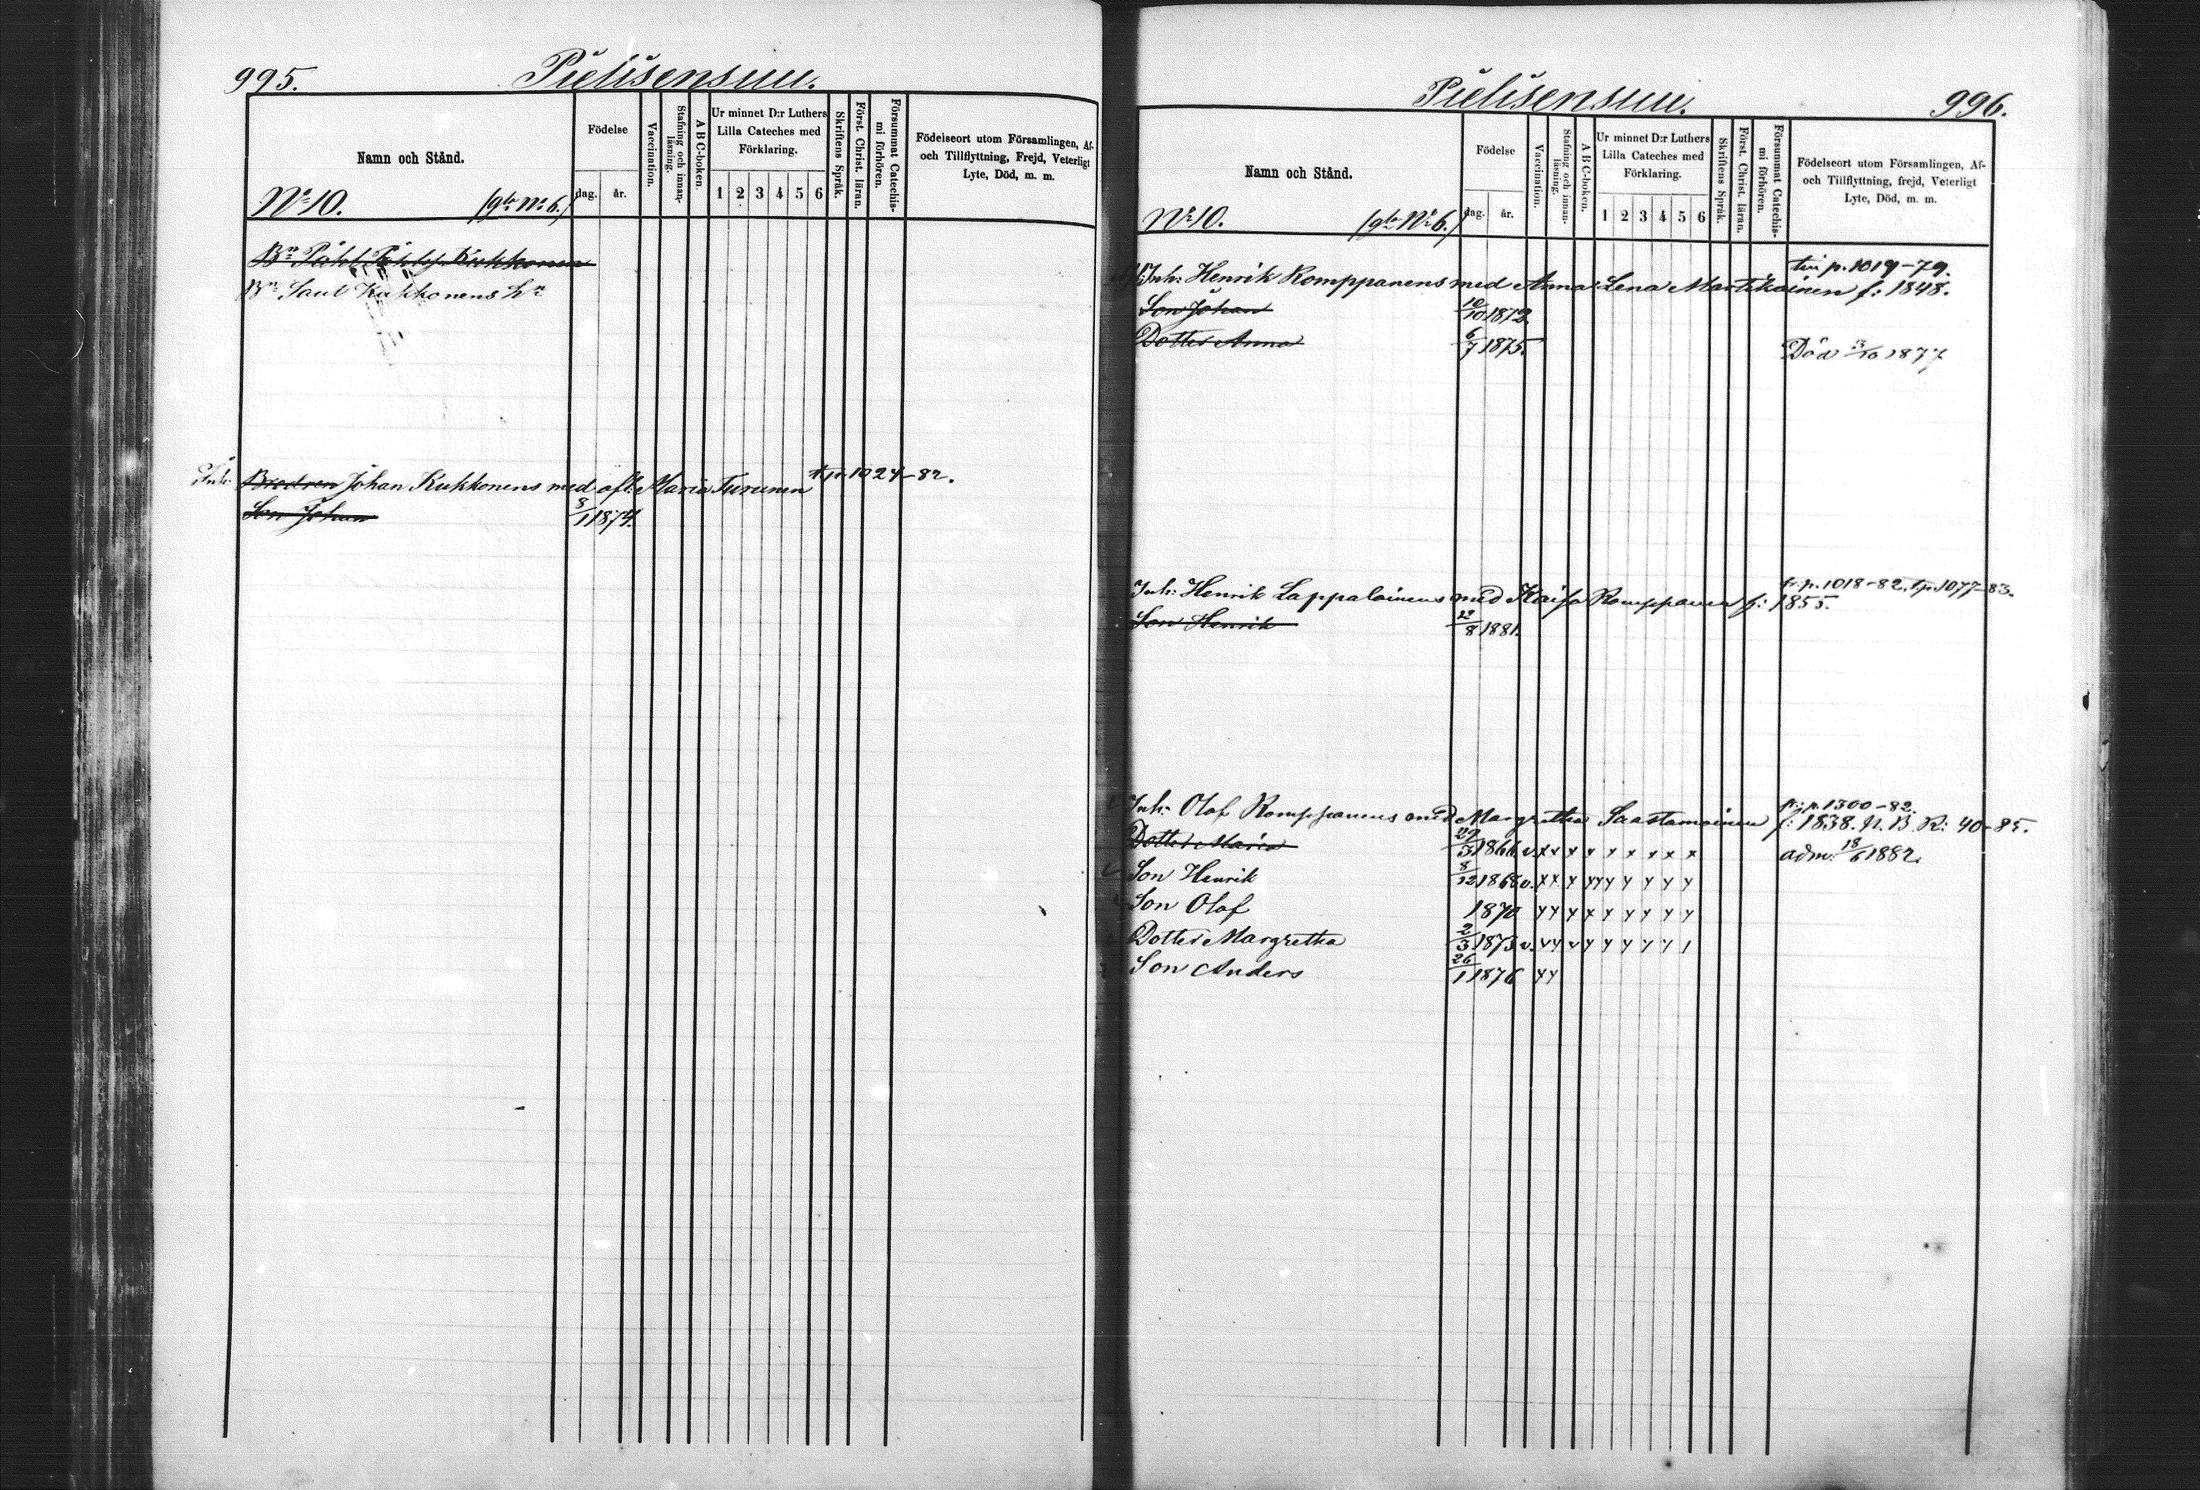 995.
Pielisensuu.
Namn och Stånd.
Födelse
dag.
år.
Vaccination.
Stafning och innanläsning.
A B C-boken.
Ur minnet D:r Luthers
Lilla Cateches med
Förklaring.
1 2 3 4 5 6
Skriftens Språk.
Först. Christ. läran.
Försummat Catechismi förhören.
Födelseort utom Församlingen, Af-
och Tillflyttning, Frejd, Veterligt
Lyte, Död, m. m.
No 10.
No 6.)
Bn Påhl Kukkonen
Bn Saul Kukkonens
Inh: Brodren Johan Kukkonens med afl: Maria Turunen t. p. 1024-82.
Son Johan 3/1 1874.
Pielisensuu.
996.
Namn och Stånd.
Födelse
dag.
år.
Vaccination.
Stafning och innanläsning.
A B C-boken.
Ur minnet D:r Luthers
Lilla Cateches med
Förklaring.
1 2 3 4 5 6
Skriftens Språk.
Först. Christ. läran.
Försummat Catechismi förhören.
Födelseort utom Församlingen, Af-
och Tillflyttning, frejd, Veterligt
Lyte, Död, m. m.
No 10.
No 6.)
p. 1019-79.
Inh: Henrik Romppanens med Anna Lena Martikainen f: 1848.
Son Johan 10/10 1872
Dotter Anna 6/7 1875. Död 3/10 1877
fr. p. 1018-82. t. p. 1077-83.
Inh: Henrik Lappalainens med Kaisa Romppanen f: 1855.
Son Henrik 8 1881.
fr: p. 1300-82.
Inh: Olof Romppanens med Margretha Saastamoinen f: 1838. p. B. R: 40-85.
Dotter Maria 29/3 1866 v. x x x x x x x x x adm: 18/6 1882.
Son Henrik 8/12 1868 v. x x y y y y y y y y
Son Olof 1870 y y y x y y y y y
Dotter Margretha 2/3 1873 v. v y v y y y y y 1
Son Anders 26/1 1876 y y